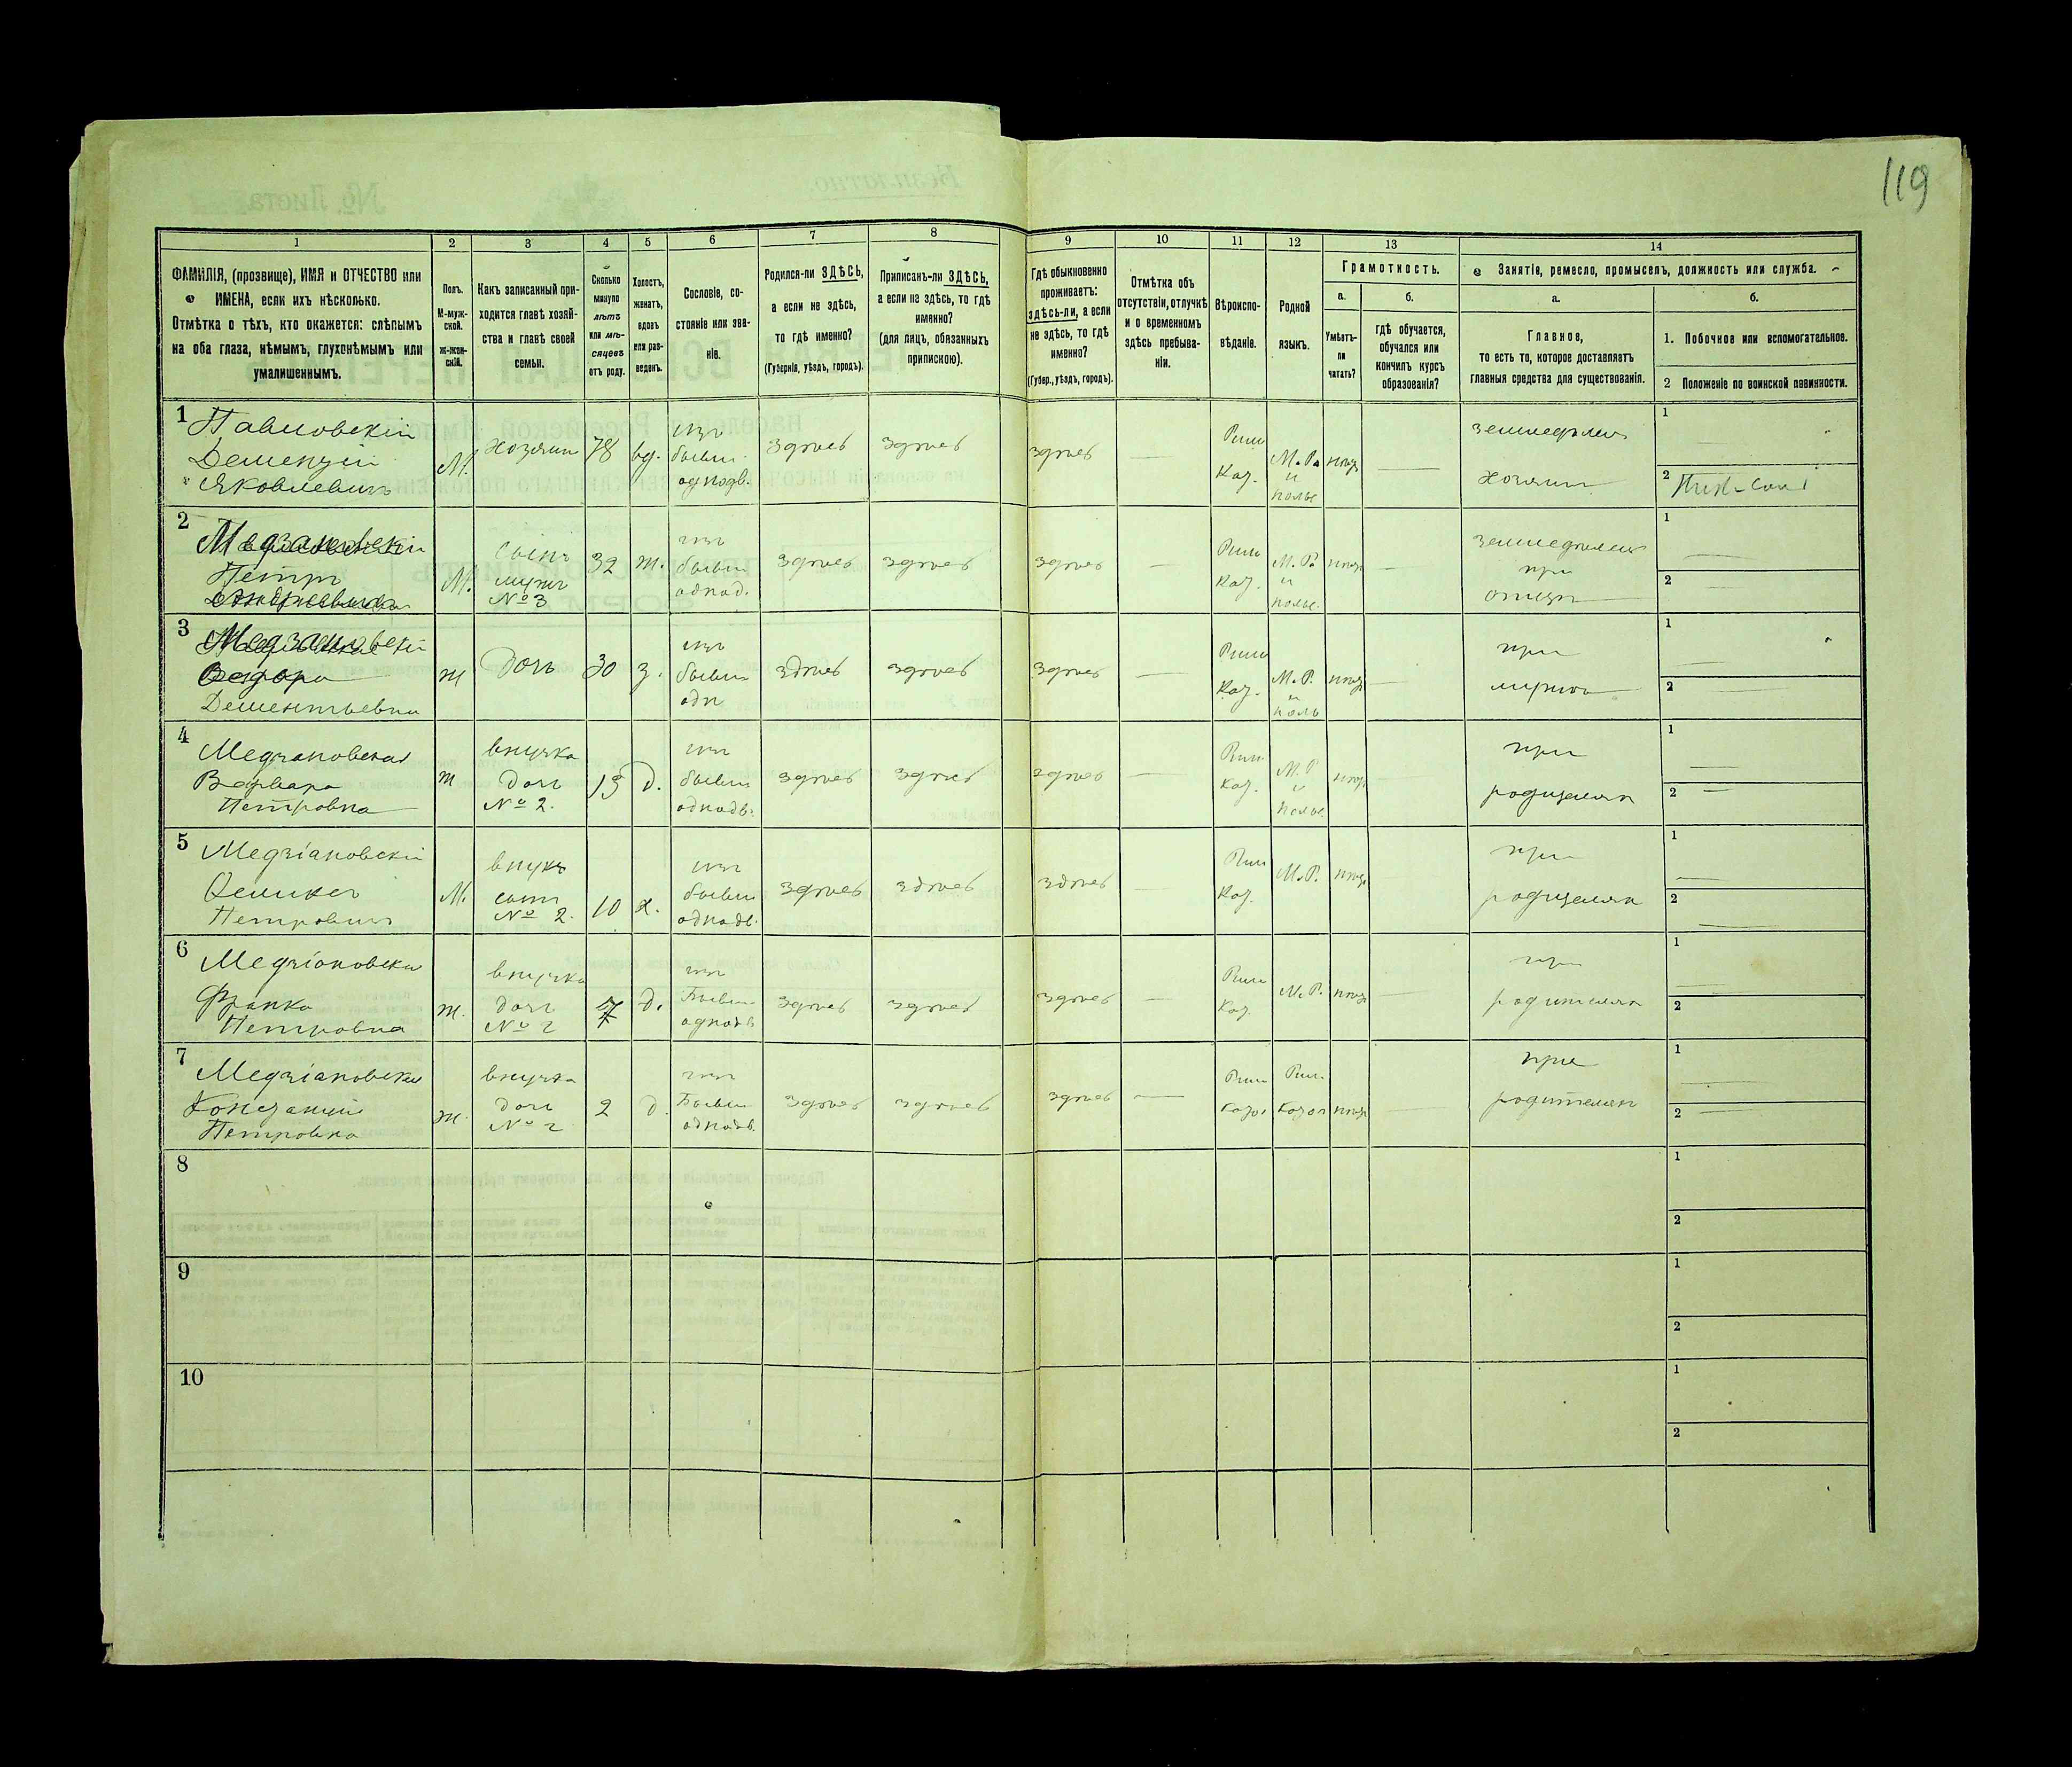 119
1 2 3 4 5 6 7 8 9 10 11 12 13 14
ФАМИЛІЯ, (прозвище), ИМЯ и ОТЧЕСТВО или
ИМЕНА, если ихъ нѣсколько.
Отмѣтка о тѣхъ, кто окажется: слѣпымъ
на оба глаза, нѣмымъ, глухонѣмымъ или
умалишеннымъ.
Полъ.
М-муж-
ской.
ж-жен-
скій.
Какъ записанный при-
ходится главѣ хозяй-
ства и главѣ своей
семьи.
Сколько
минуло
лѣтъ
или мѣ-
сяцевъ
отъ роду.
Холостъ,
женатъ,
вдовъ
или раз-
веденъ.
Сословіе, со-
стояніе или зва-
ніе.
Родился-ли ЗДѢСЬ,
а если не здѣсь,
то гдѣ именно?
(Губернія, уѣздъ, городъ).
Приписанъ-ли ЗДѢСЬ,
а если не здѣсь, то гдѣ
именно?
(для лицъ, обязанныхъ
припискою).
Гдѣ обыкновенно
проживаетъ:
здѣсь-ли, а если
не здѣсь, то гдѣ
именно?
(Губер., уѣздъ, городъ).
Отмѣтка объ
отсутствіи, отлучкѣ
и о временномъ
здѣсь пребыва-
ніи.
Вѣроиспо-
вѣданіе.
Родной
языкъ.
Грамотность.
а.
Умѣетъ-
ли
читать?
б.
гдѣ обучается,
обучался или
кончилъ курсъ
образованія?
Занятіе, ремесло, промыселъ, должность или служба.
а.
Главное,
то есть то, которое доставляетъ
главныя средства для существованія.
б.
1. Побочное или вспомогательное.
2 Положеніе по воинской повинности.
1
Павловскій
Деменцій
Яковлевичъ
М.
хозяин
78
вд.
изъ
бывш.
однодв.
здѣсь
здѣсь
здѣсь
Рим
Каз.
М. Р.
и
поль
земледѣлец
хозяин
1
2
2
Петръ
М.
сынъ
мужъ
№ 3
32
ж.
изъ
бывш
однод.
здѣсь
здѣсь
здѣсь
Рим
М. Р.
и
поль.
земледѣлец
при
отцѣ
1
2
3
Дементьевна
ж
дочь
30
з.
изъ
бывш
одн
здѣсь
здѣсь
здѣсь
Рим
М. Р.
и
поль
при
мужѣ
1
2
4
Медзяновская
Варвара
Петровна
ж
внучка
дочь
№ 2.
13
д.
изъ
бывш
однодв.
здѣсь
здѣсь
здѣсь
Рим
М. Р
и
поль
при
родителях
1
2
5
Медзіановскій
Феликсъ
Петровичъ
М.
внукъ
сынъ
№ 2.
10
х.
изъ
бывш
однодв.
здѣсь
здѣсь
здѣсь
Рим
М. Р.
при
родителях
1
2
6
Медзіановска
Франка
Петровна
ж.
внучка
дочь
№ 2
7
д.
изъ
Бывш
однодв
здѣсь
здѣсь
здѣсь
Рим
М. Р.
при
родителях
1
2
7
Медзіановска
Констанція
Петровна
ж.
внучка
дочь
№ 2
2
д.
изъ
Бывш
однодв.
здѣсь
здѣсь
здѣсь
Рим
Рим
при
родителях
1
2
8
1
2
9
1
2
10
1
2